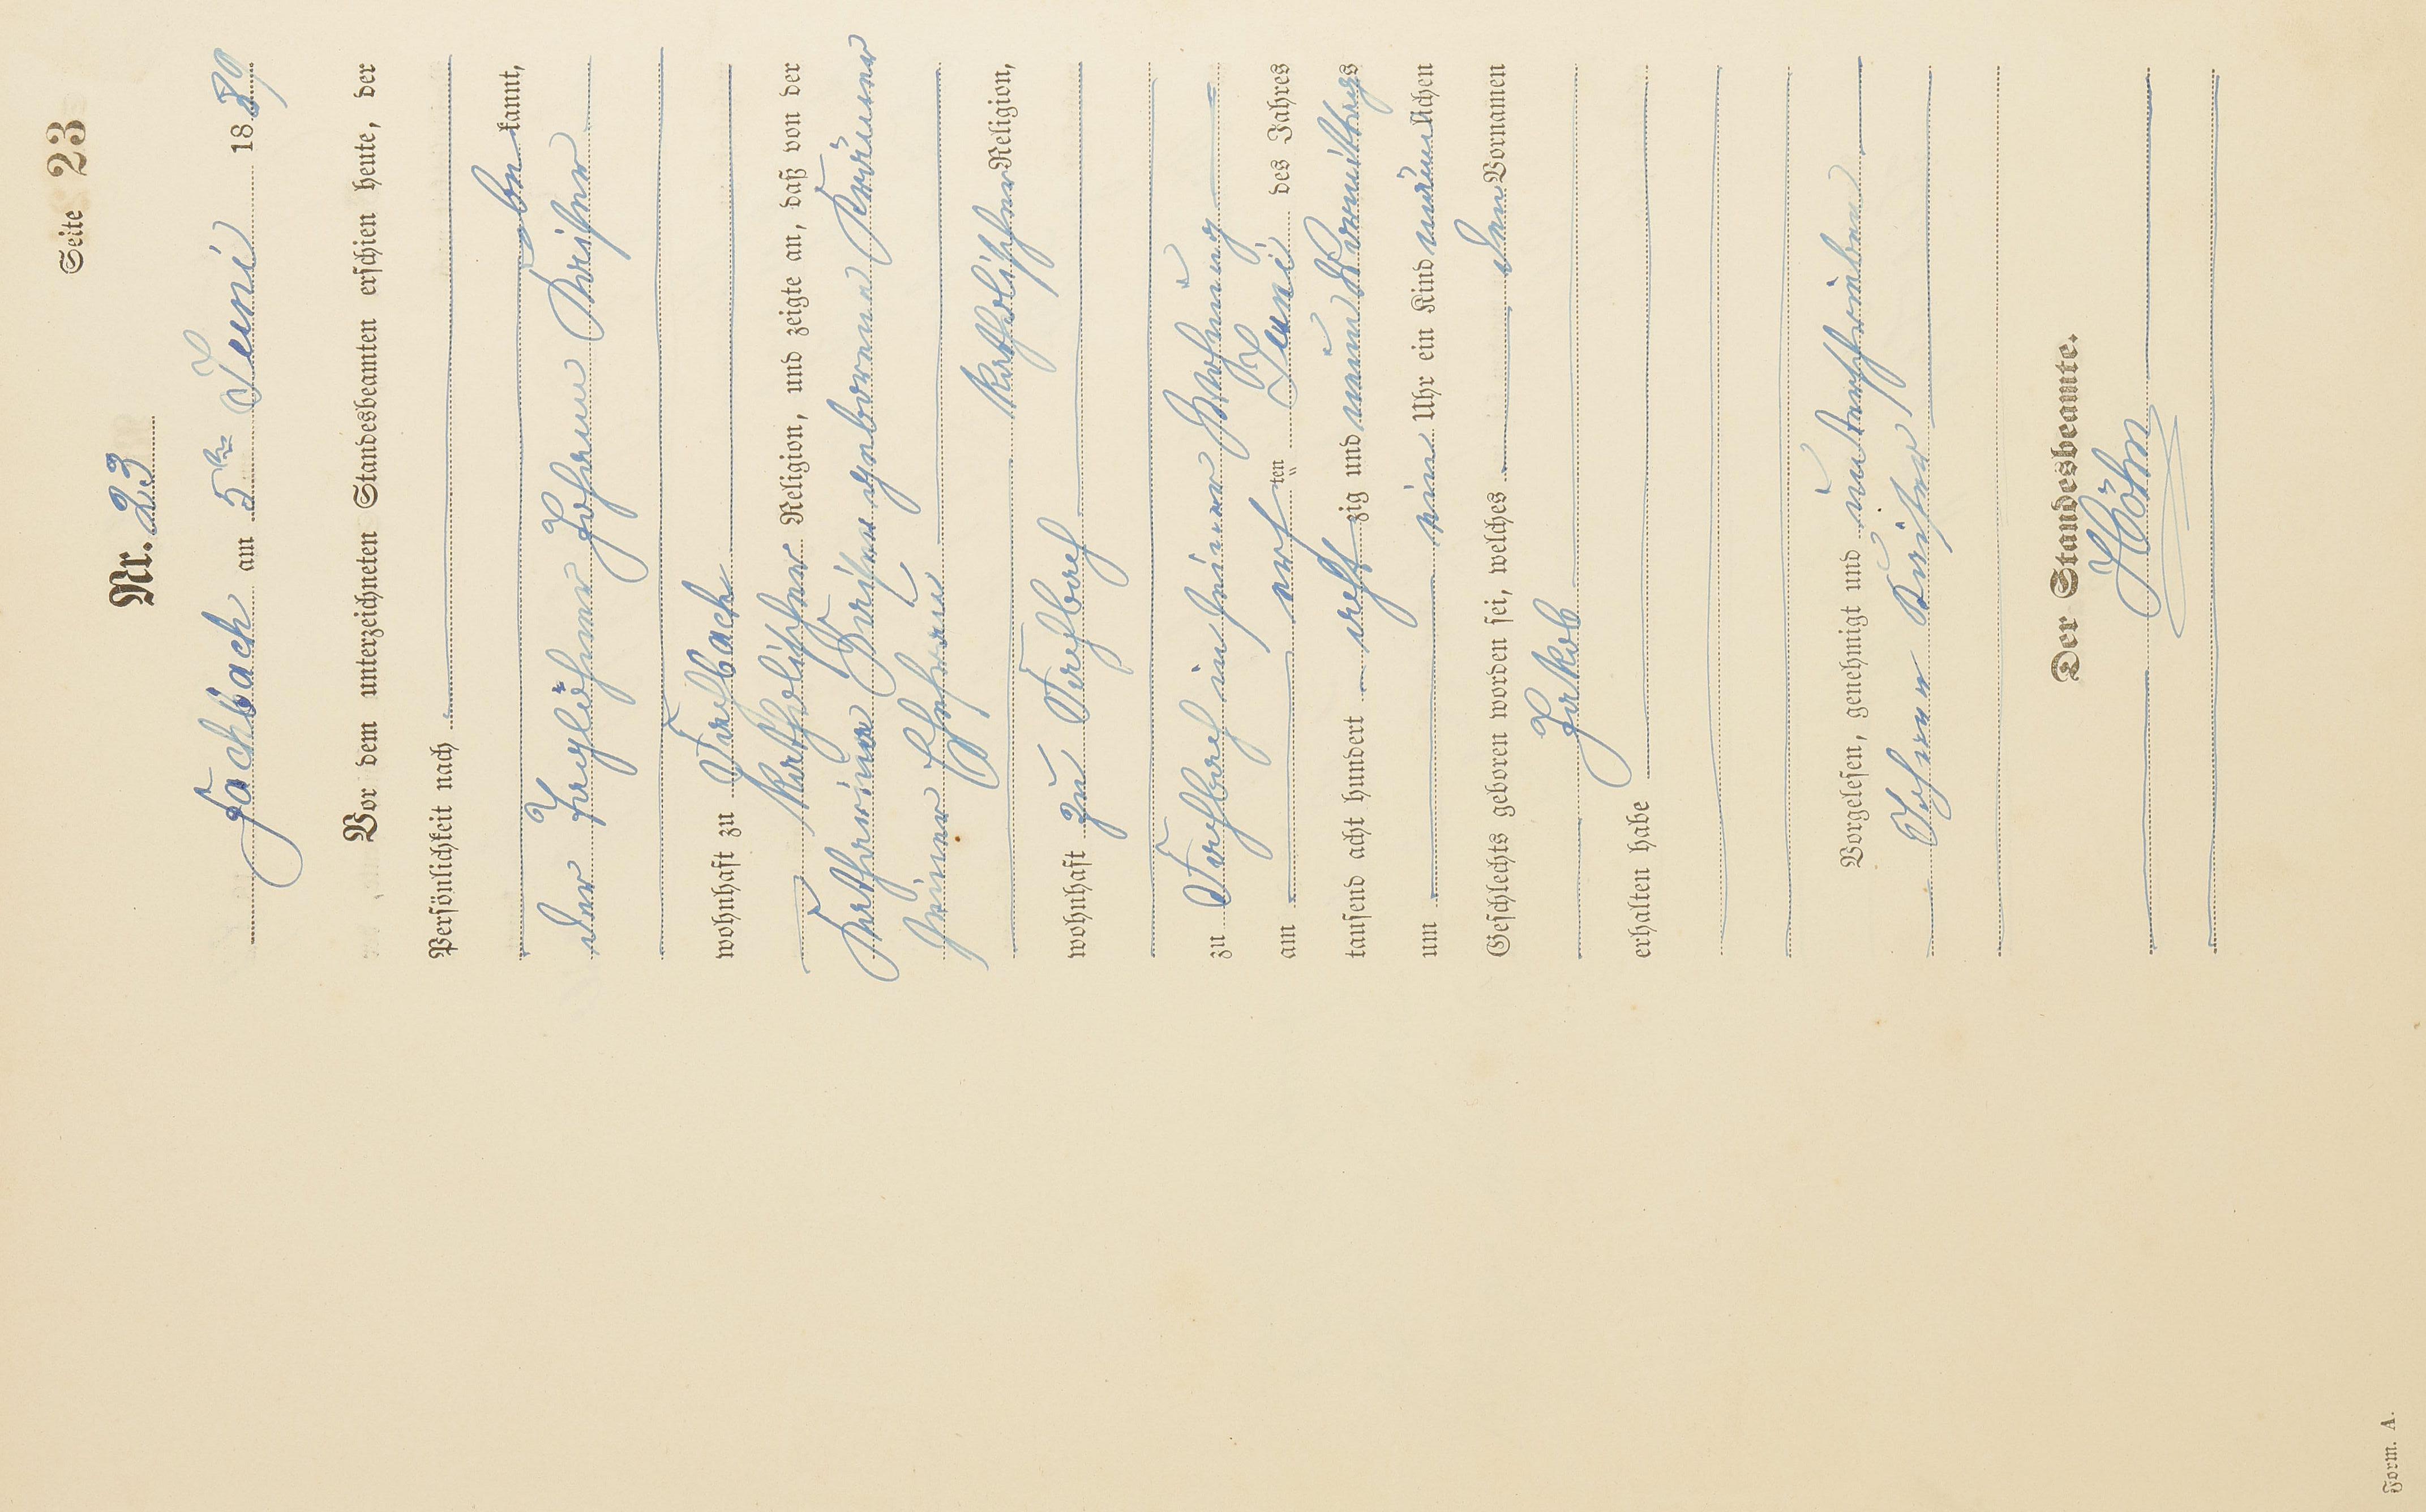 Seite 23
Nr. 23
Fachbach am 5ten Juni 1889
Vor dem unterzeichneten Standesbeamten erschien heute, der
Persönlichkeit nach
be kannt,
der Taglöhner Johann
wohnhaft zu Fachbach
katholischer Religion, und zeigte an, daß von der
Katharina geborenen
seiner Ehefrau
katholischer Religion,
wohnhaft zu Fachbach
zu Fachbach in seiner Wohnung
am ersten Juni des Jahres
tausend acht hundert acht zig und neun Vormittags
um ein Uhr ein Kind männlichen
Geschlechts geboren worden sei, welches den Vornamen
Jakob
erhalten habe
Vorgelesen, genehmigt und unterschrieben
Johann
Der Standesbeamte.
Höhn
Form. A.